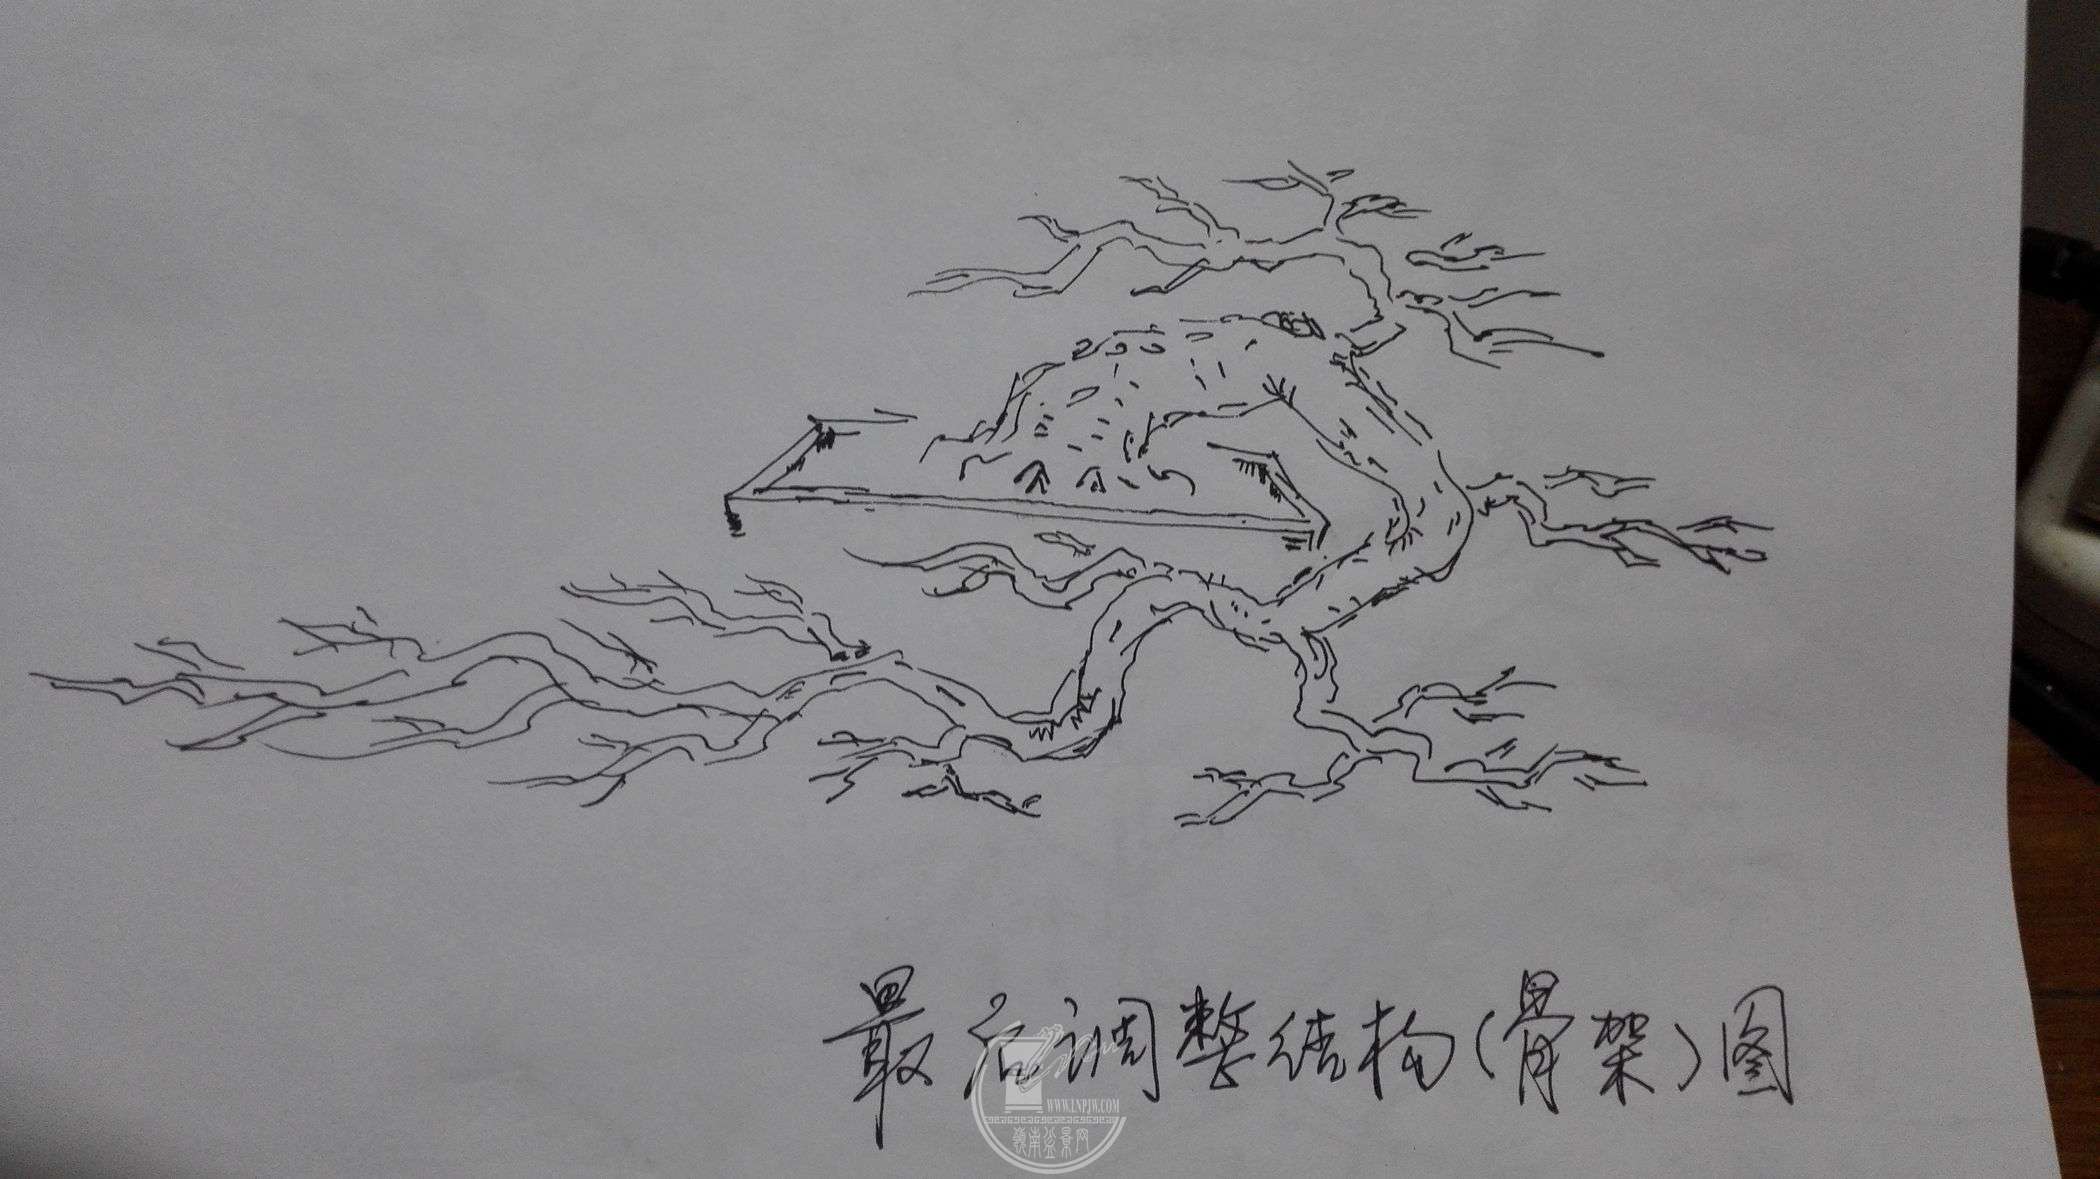 最后调整结构(骨架)图
WWW.LNPJW.COM
嶺南盆景网